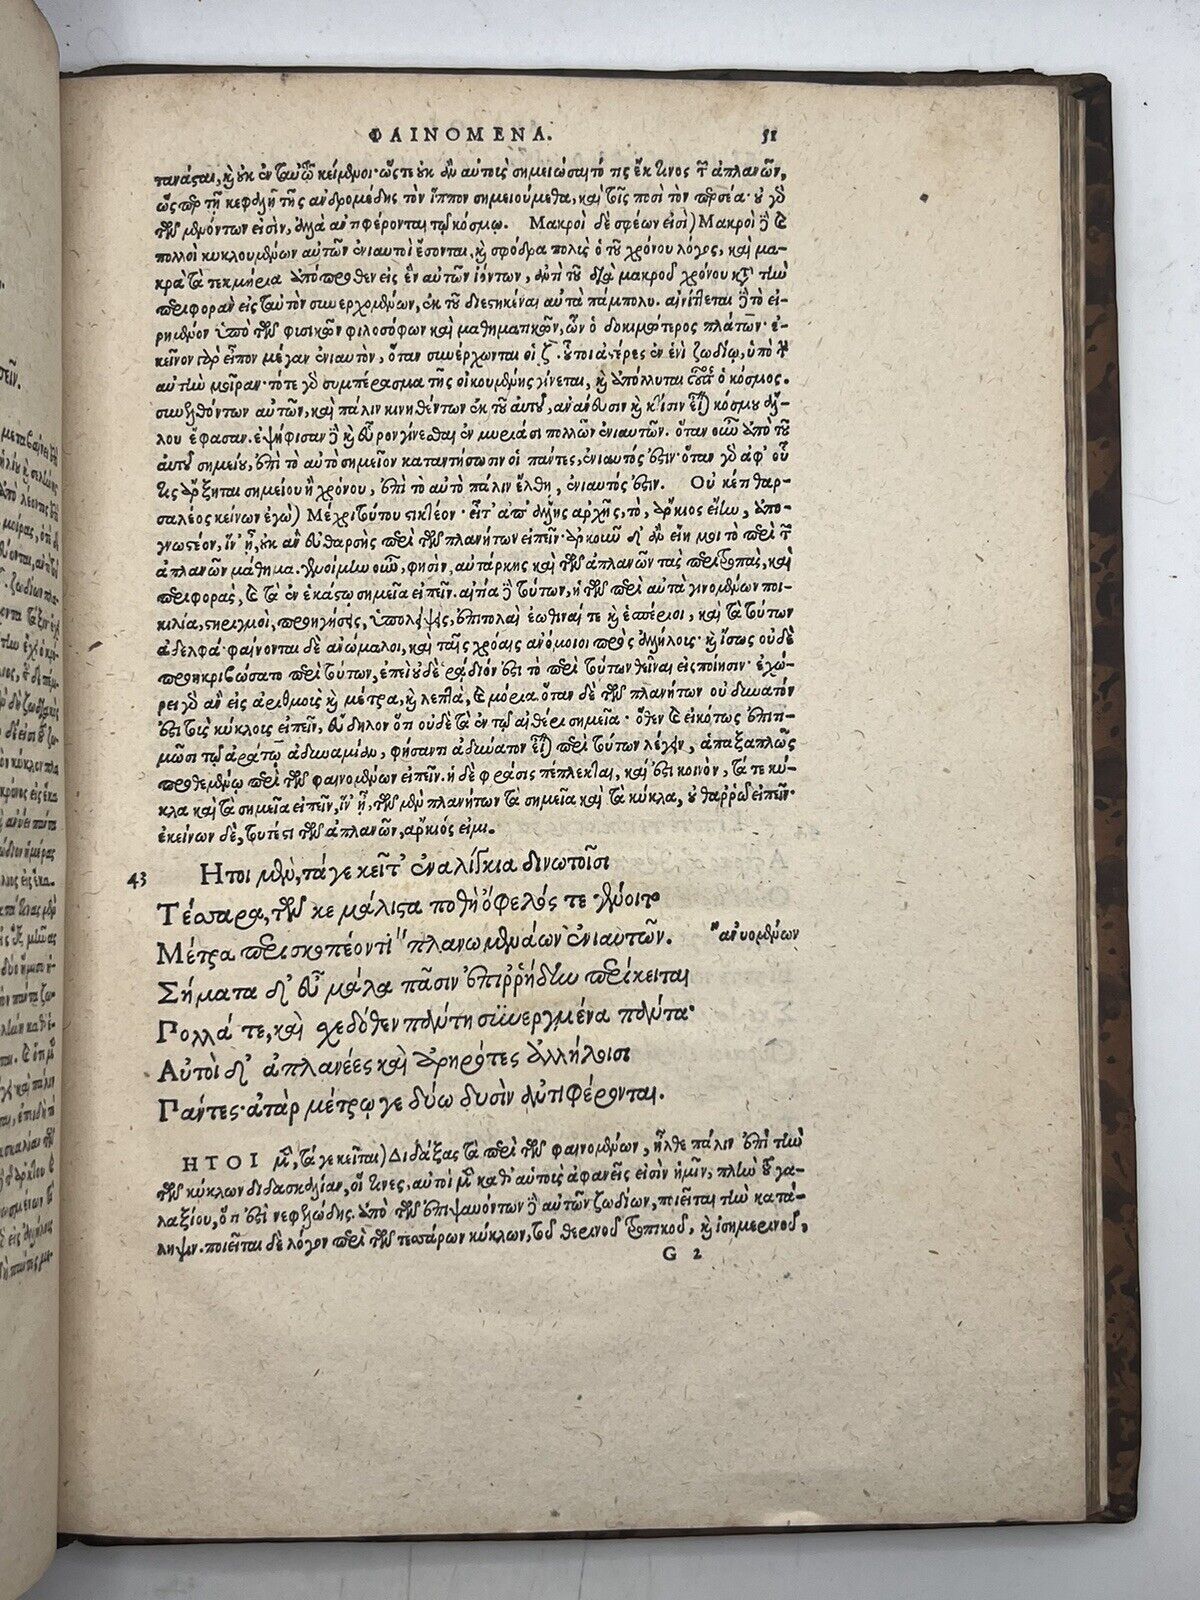 ΦΑΙΝΟΜΕΝΑ. 51
τανᾶσαι, καὶ οὐκ ἐν ταυτῷ κείμενοι· ὥστε οὐκ ἂν αὐτοῖς σημειώσαιτό τις ἔκ τινος τῶν ἀπλανῶν,
ὥσπερ τῇ κεφαλῇ τῆς ἀνδρομέδης τὸν ἵππον σημειούμεθα, καὶ τοῖς ποσὶ τὸν περσέα· οὐ γὰρ
τῶν μενόντων εἰσὶν, ἀλλὰ ἀντιφέρονται τῷ κόσμῳ. Μακροὶ δὲ σφέων εἰσὶ) Μακροὶ γὰρ καὶ
πολλοὶ κυκλουμένων αὐτῶν ἐνιαυτοὶ ἔσονται, καὶ σφόδρα πολὺς ὁ τοῦ χρόνου λόγος, καὶ μα-
κρὰ τὰ τεκμήρια ἀπόπροθεν εἰς ἓν αὐτῶν ἰόντων, ἀντὶ τοῦ διὰ μακροῦ χρόνου κατὰ τὴν
περιφορὰν εἰς ταυτὸν συνερχομένων, ἐκ τοῦ διεστηκέναι αὐτὰ πάμπολυ. αἰνίττεται γὰρ τὸ εἰ-
ρημένον ὑπὸ τῶν φυσικῶν φιλοσόφων καὶ μαθηματικῶν, ὧν ὁ δοκιμώτερος πλάτων· ἐ-
κεῖνον γὰρ εἶπον μέγαν ἐνιαυτὸν, ὅταν συνέρχωνται οἱ ζ. οὗτοι ἀστέρες ἐν ἑνὶ ζωδίῳ, ὑπὸ τὴν
αὐτὴν μοῖραν· τότε γὰρ συμπέρασμα τῆς οἰκουμένης γίνεται, καὶ ἀπόλλυται οὗτος ὁ κόσμος.
συνελθόντων αὐτῶν, καὶ πάλιν κινηθέντων ἐκ τοῦ αὐτοῦ, ἀνάνευσιν καὶ κτίσιν εἶναι κόσμου ἄλ-
λου ἔφασαν. ἐψήφισαν γὰρ καὶ εὗρον γίνεσθαι ἐν μυριάσι πολλῶν ἐνιαυτῶν. ὅταν οὖν ἀπὸ τοῦ
αὐτοῦ σημείου, ἐπὶ τὸ αὐτὸ σημεῖον καταντήσωσιν οἱ πάντες, ἐνιαυτός ἐστιν· ὅταν γὰρ ἀφ' οὗ
τις ἄρξηται σημείου ἢ χρόνου, ἐπὶ τὸ αὐτὸ πάλιν ἔλθῃ, ἐνιαυτός ἐστιν. Οὐκ ἔπι θαρ-
σαλέος κείνων ἐγὼ) Μέχρι τούτου στικτέον· εἶτ' ἀπ' ἄλλης ἀρχῆς, τὸ, ἄρκιος εἴην, ὑπο-
γνωστέον, ἵν' ᾖ, οὐκ ἂν εὐθαρσὴς περὶ τῶν πλανήτων εἰπεῖν· ἀρκοῦν δ' ἂν εἴη μοι τὸ περὶ τῶν
ἀπλανῶν μάθημα. γενοίμην οὖν, φησὶν, αὐτάρκης καὶ τῶν ἀπλανῶν τὰς περιτροπὰς, καὶ
περιφορὰς, καὶ τὰ ἐν ἑκάστῳ σημεῖα εἰπεῖν. αἰτία γὰρ τούτων, ἡ τῶν περὶ αὐτὰ γινομένων ποι-
κιλία, στηριγμοὶ, προηγήσεις, ὑπολείψεις, ἐπιτολαὶ ἑωθιναί τε καὶ ἑσπέριοι, καὶ τὰ τούτων
ἀδελφά· φαίνονται δὲ ἀνώμαλοι, καὶ ταῖς χρόαις ἀνόμοιοι πρὸς ἀλλήλοις· καὶ ἴσως οὐδὲ
προηκριβώσατο περὶ τούτων, ἐπεὶ οὐδὲ ῥᾴδιόν ἐστι τὸ περὶ τούτων θεῖναι εἰς ποίησιν· ἐχώ-
ρει γὰρ ἂν εἰς ἀριθμοὺς καὶ μέτρα, καὶ λεπτὰ, καὶ μόρια. ὅταν δὲ τῶν πλανήτων οὐ δυνατόν
ἐστι τοὺς κύκλους εἰπεῖν, εὔδηλον ὅτι οὐδὲ τὰ ἐν τῷ αἰθέρι σημεῖα· ὅθεν καὶ εἰκότως ἐπιτι-
μῶσι τῷ ἀράτῳ ἀδυναμίαν, φήσαντι ἀδύνατον εἶναι περὶ τούτων λέγειν, ἅπαξ ἁπλῶς
προθεμένῳ περὶ τῶν φαινομένων εἰπεῖν. ἡ δὲ φράσις πέπλεκται, καὶ ἔστι κοινὸν, τά τε κύ-
κλα καὶ τὰ σημεῖα εἰπεῖν, ἵν' ᾖ, τῶν μὲν πλανήτων τὰ σημεῖα καὶ τὰ κύκλα, οὐ θαρρῶ εἰπεῖν·
ἐκείνων δὲ, τουτέστι τῶν ἀπλανῶν, ἄρκιός εἰμι.
43 Ητοι μὲν, τά γε κεῖτ' ἐναλίγκια δινωτοῖσι
Τέσσαρα, τῶν κε μάλιστα ποθὴ ὄφελός τε γένοιτο
Μέτρα περισκοπέοντι " πλανωμενάων ἐνιαυτῶν. " ἀνυομένων
Σήματα δ' εὖ μάλα πᾶσιν ἐπιρρήδην περίκειται
Πολλά τε, καὶ σχεδόθεν πάντη συνεργμένα πάντα·
Αὐτοὶ δ' ἀπλανέες καὶ ἀρηρότες ἀλλήλοισι
Πάντες· ἀτὰρ μέτρῳ γε δύω δυσὶν ἀντιφέρονται.
ΗΤΟΙ μὲν, τά γε κεῖται) Διδάξας τὰ περὶ τῶν φαινομένων, ἦλθε πάλιν ἐπὶ τὴν
τῶν κύκλων διδασκαλίαν, οἵ τινες, αὐτοὶ μὲν καθ' αὑτοὺς ἀφανεῖς εἰσὶν ἡμῖν, πλὴν τοῦ γα-
λαξίου, ὅτι ἐστὶ νεφελώδης. ἀπὸ τῶν ἐπιψαυόντων γὰρ αὐτῶν ζωδίων, ποιεῖται τὴν κατά-
ληψιν. ποιεῖται δὲ λόγον περὶ τῶν τεσσάρων κύκλων, τοῦ θερινοῦ τροπικοῦ, καὶ ἰσημερινοῦ,
G 2